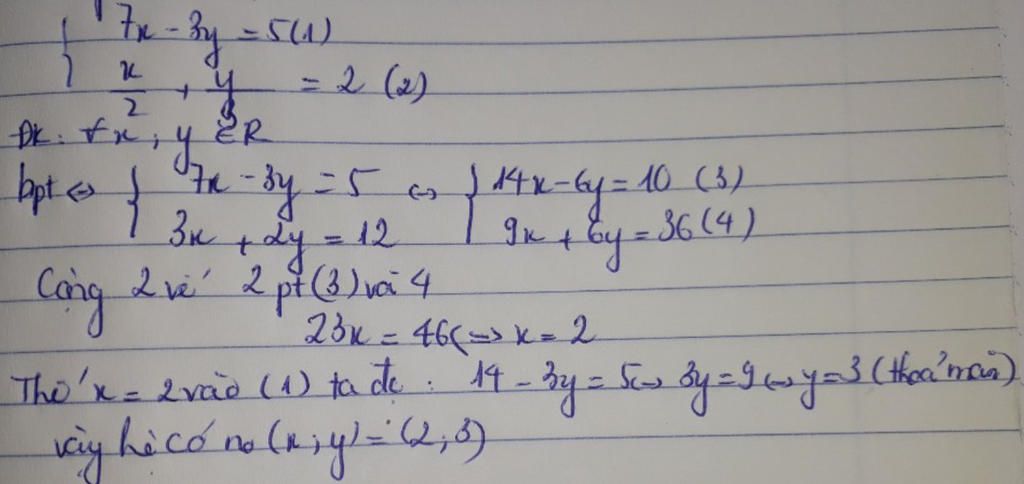 { 7x - 3y = 5 (1)
x/2 + y/3 = 2 (2)
ĐK: ∀x, y ∈ R
hpt ⇔ { 7x - 3y = 5 ⇔ { 14x - 6y = 10 (3)
3x + 2y = 12 9x + 6y = 36 (4)
Cộng 2 vế 2 pt (3) và 4
23x = 46 ⇔ x = 2
Thế x = 2 vào (1) ta đc: 14 - 3y = 5 ⇔ 3y = 9 ⇔ y = 3 (thoả mãn)
vậy hệ có no (x; y) = (2; 3)